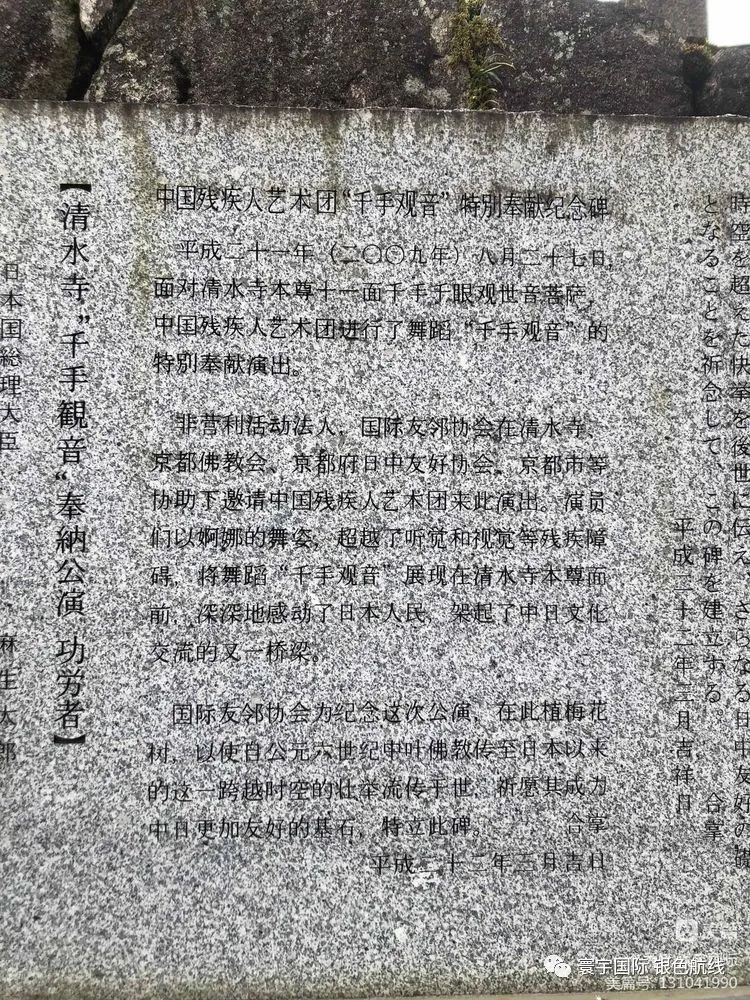 時空を超えた快挙を後世に伝え、さらなる日中友好の礎
となることを祈念して、この碑を建立する。 合掌
平成二十二年三月吉祥日
中国残疾人艺术团“千手观音”特别奉献纪念碑
平成二十一年（二〇〇九年）八月二十七日，
面对清水寺本尊十一面千手千眼观世音菩萨，
中国残疾人艺术团进行了舞蹈“千手观音”的
特别奉献演出。
非营利活动法人，国际友邻协会在清水寺、
京都佛教会、京都府日中友好协会、京都市等
协助下邀请中国残疾人艺术团来此演出。演员
们以婀娜的舞姿，超越了听觉和视觉等残疾障
碍，将舞蹈“千手观音”展现在清水寺本尊面
前，深深地感动了日本人民，架起了中日文化
交流的又一桥梁。
国际友邻协会为纪念这次公演，在此植梅花
树，以使自公元六世纪中叶佛教传至日本以来
的这一跨越时空的壮举流传于世，祈愿其成为
中日更加友好的基石，特立此碑。 合掌
平成二十二年三月吉日
【清水寺“千手観音”奉納公演 功労者】
日本国総理大臣 麻生太郎
寰宇国际 银色航线
美篇号:131041990